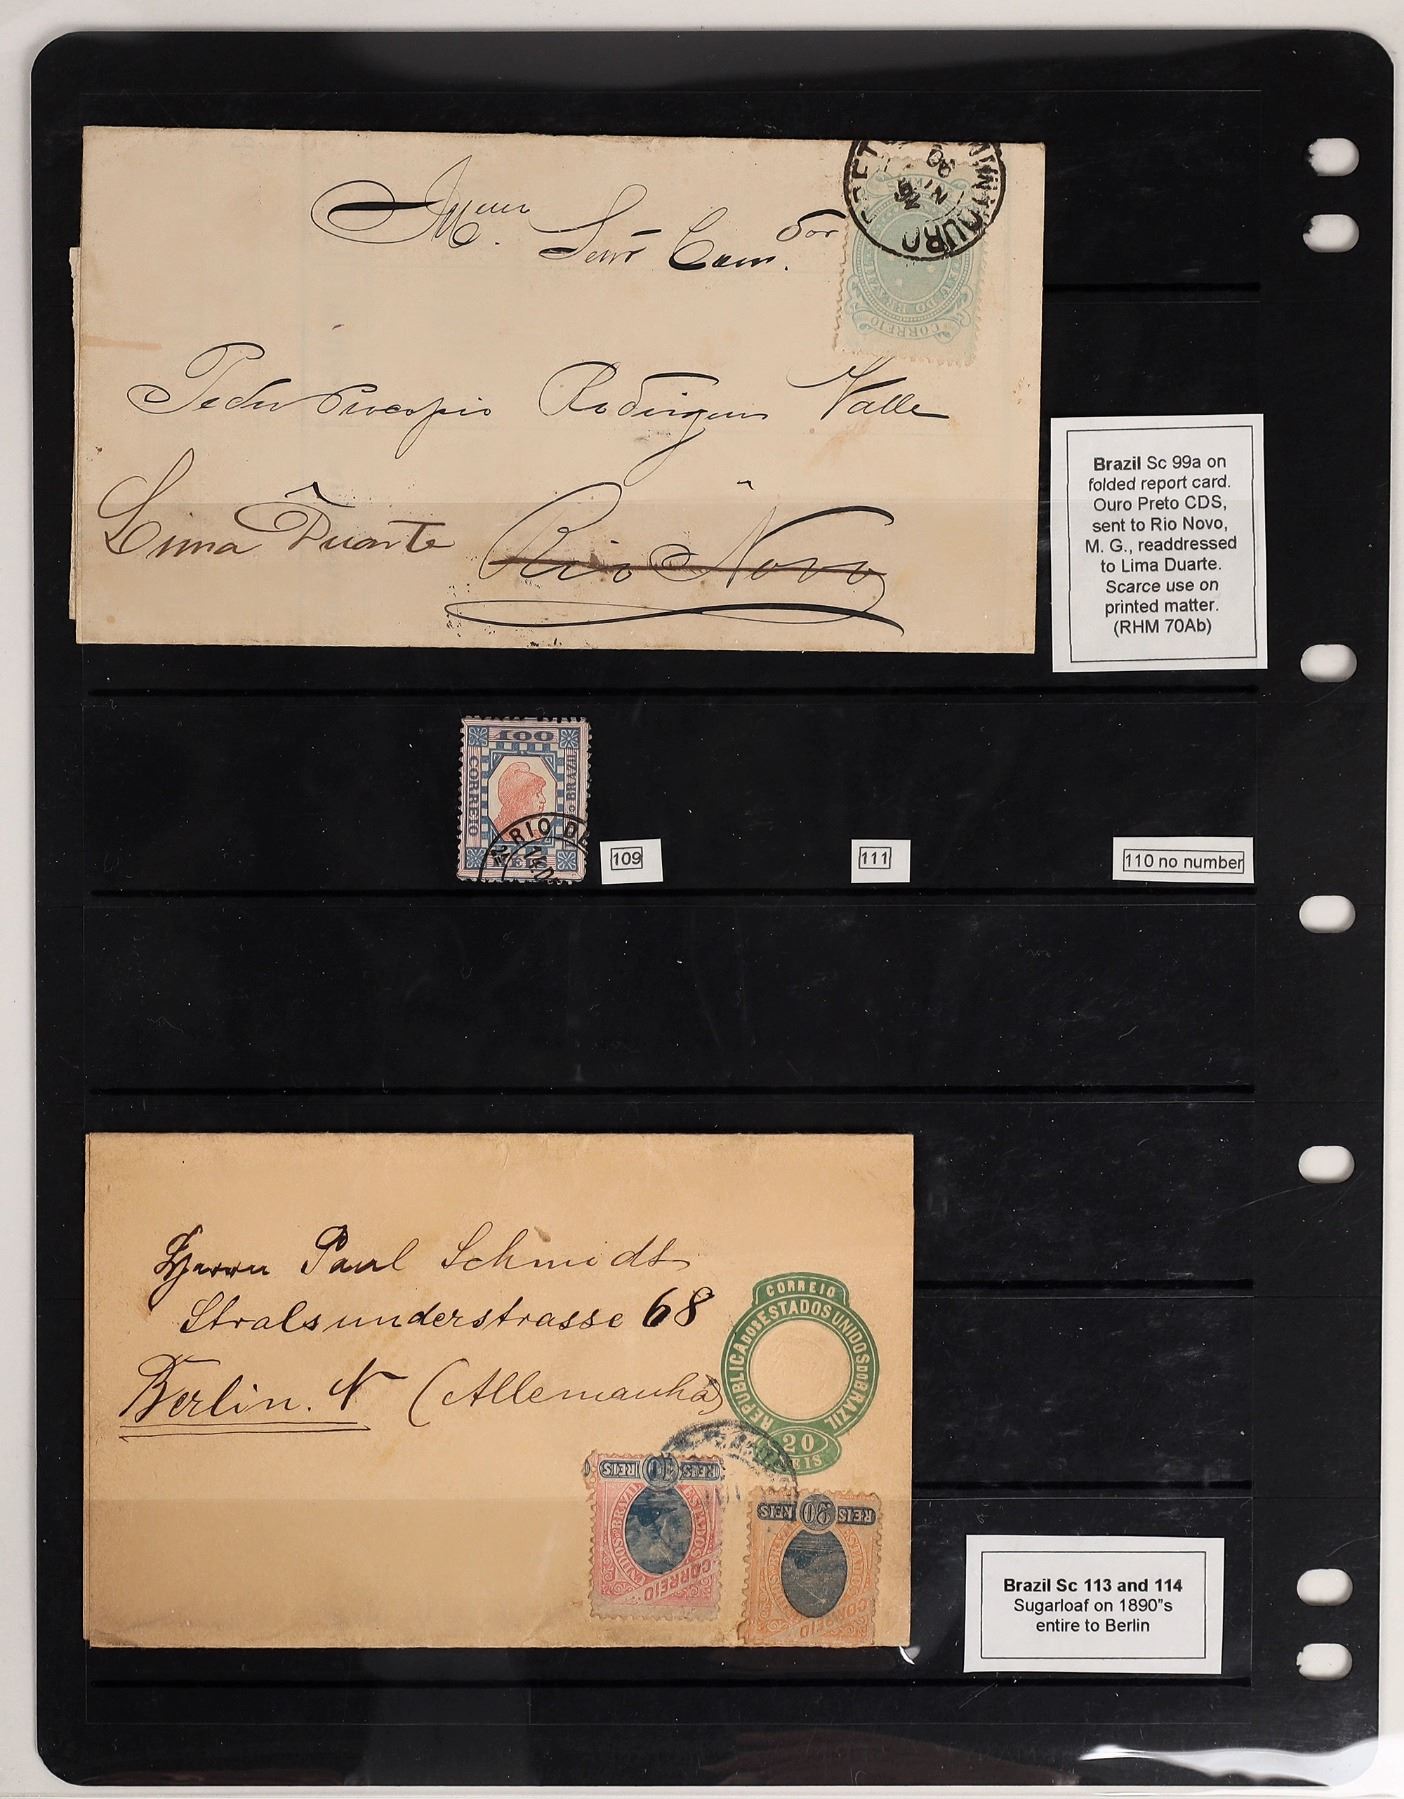 Sen.r Com.dor
Pedro Procopio Rodrigues Valle
Lima Duarte Rio Novo
OURO
CORREIO
Brazil Sc 99a on
folded report card.
Ouro Preto CDS,
sent to Rio Novo,
M. G., readdressed
to Lima Duarte.
Scarce use on
printed matter.
(RHM 70Ab)
100
CORREIO
BRAZIL
RIO DE
109
111
110 no number
Herrn Paul Schmidt
Stralsunderstrasse 68
Berlin. N (Allemanha)
CORREIO
REPUBLICA DOS ESTADOS UNIDOS DO BRAZIL
20
REIS
REIS 10 REIS
CORREIO
REIS 20 REIS
CORREIO
Brazil Sc 113 and 114
Sugarloaf on 1890"s
entire to Berlin